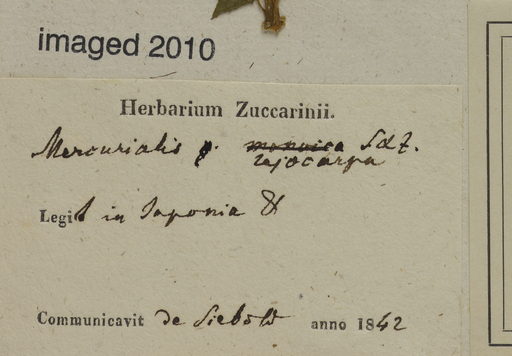 imaged 2010
Herbarium Zuccarinii.
Mercurialis monoica S&Z.
lejocarpa
Legit in Japonia
Communicavit de Siebold anno 1842